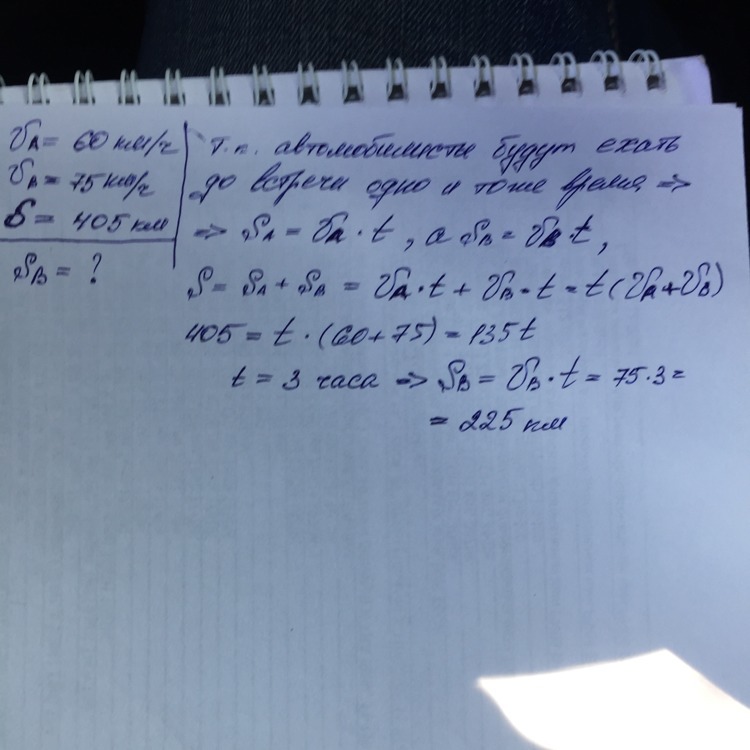 VA = 60 км/ч
VB = 75 км/ч
S = 405 км
SB = ?
т.к. автомобилисты будут ехать
до встречи одно и тоже время =>
=> SA = VA · t, а SB = VB t,
S = SA + SB = VA · t + VB · t = t (VA + VB)
405 = t · (60 + 75) = 135t
t = 3 часа => SB = VB · t = 75 · 3 =
= 225 км